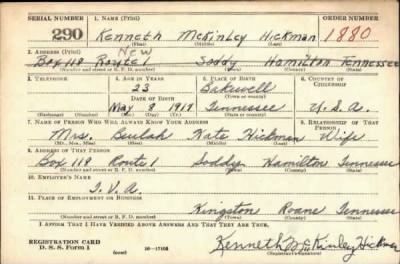 SERIAL NUMBER 1. NAME (Print) ORDER NUMBER
290 Kenneth McKinley Hickman 1880
(First) (Middle) (Last)
2. ADDRESS (Print) New
Box 118 Route 1 Soddy Hamilton Tennessee
(Number and street or R. F. D. number) (Town) (County) (State)
3. TELEPHONE 4. AGE IN YEARS 5. PLACE OF BIRTH 6. COUNTRY OF CITIZENSHIP
23 Bakewell
(Town or county)
DATE OF BIRTH
May 8 1917 Tennessee U.S.A.
(Exchange) (Number) (Mo.) (Day) (Yr.) (State or country)
7. NAME OF PERSON WHO WILL ALWAYS KNOW YOUR ADDRESS 8. RELATIONSHIP OF THAT PERSON
Mrs. Beulah Kate Hickman Wife
(Mr., Mrs., Miss) (First) (Middle) (Last)
9. ADDRESS OF THAT PERSON
Box 118 Route 1 Soddy Hamilton Tennessee
(Number and street or R. F. D. number) (Town) (County) (State)
10. EMPLOYER'S NAME
T.V.A.
11. PLACE OF EMPLOYMENT OR BUSINESS
Kingston Roane Tennessee
(Number and street or R. F. D. number) (Town) (County) (State)
I AFFIRM THAT I HAVE VERIFIED ABOVE ANSWERS AND THAT THEY ARE TRUE.
REGISTRATION CARD
D. S. S. Form 1 (over) 16—17105 Kenneth McKinley Hickman
(Registrant's signature)